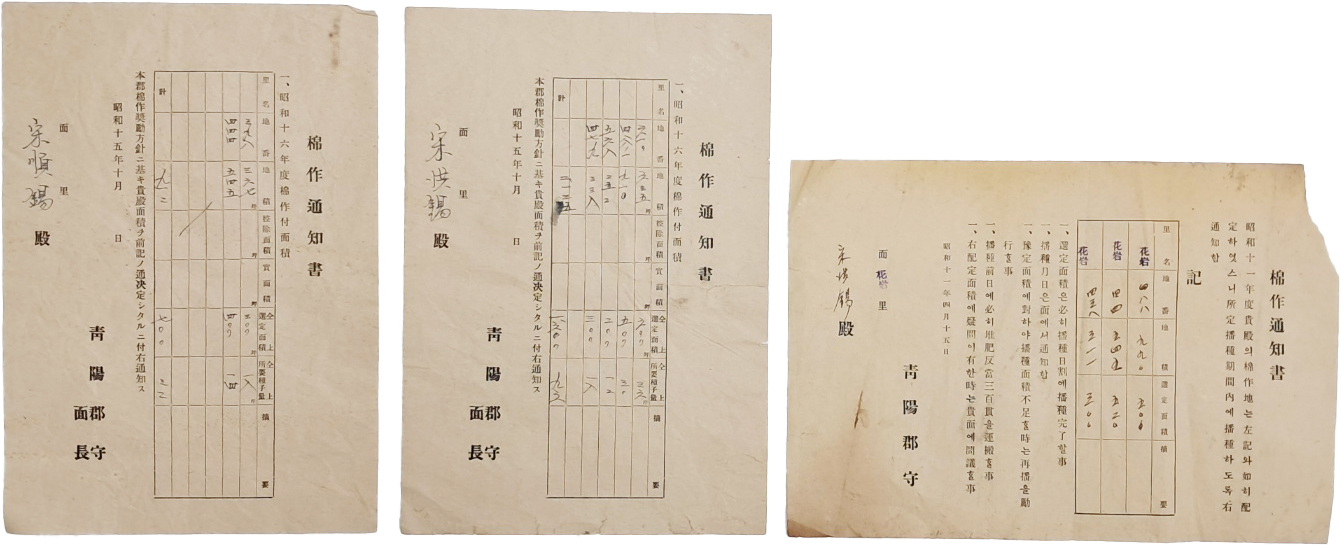 棉作通知書
一、昭和十六年度棉作付面積
里名 地番 地積 控除面積 實面積 仝上選定面積 仝上所要種子量 摘要
三九八 三六七 三〇〇 一八
四四四 五四五 四〇〇 二四
計 九一二 七〇〇
本郡棉作奬勵方針ニ基キ貴殿面積ヲ前記ノ通決定シタルニ付右通知ス
昭和十五年十月 日
靑陽郡守
面長
面 里
宋順錫 殿
棉作通知書
一、昭和十六年度棉作付面積
里名 地番 地積 控除面積 實面積 仝上選定面積 仝上所要種子量 摘要
計
本郡棉作奬勵方針ニ基キ貴殿面積ヲ前記ノ通決定シタルニ付右通知ス
昭和十五年十月 日
靑陽郡守
面長
面 里
宋洪錫 殿
棉作通知書
昭和十一年度貴殿의棉作地는左記와如히配
定하엿스니所定播種期間內에播種하도록右
通知함
記
里名 地番 地積 選定面積 摘要
花岩 四八八 九九〇 五〇〇
花岩 四四四 五四五 五二〇
花岩 四三八 三一一 三〇〇
一、選定面積은必히播種日割에播種完了할事
一、播種月日은面에서通知함
一、豫定面積에對하야播種面積不足할時는再播을勵
行할事
一、播種前日에必히堆肥反當三百貫을運搬할事
一、右配定面積에疑問이有한時는貴面에問議할事
昭和十一年四月十五日
靑陽郡守
面 花岩 里
殿